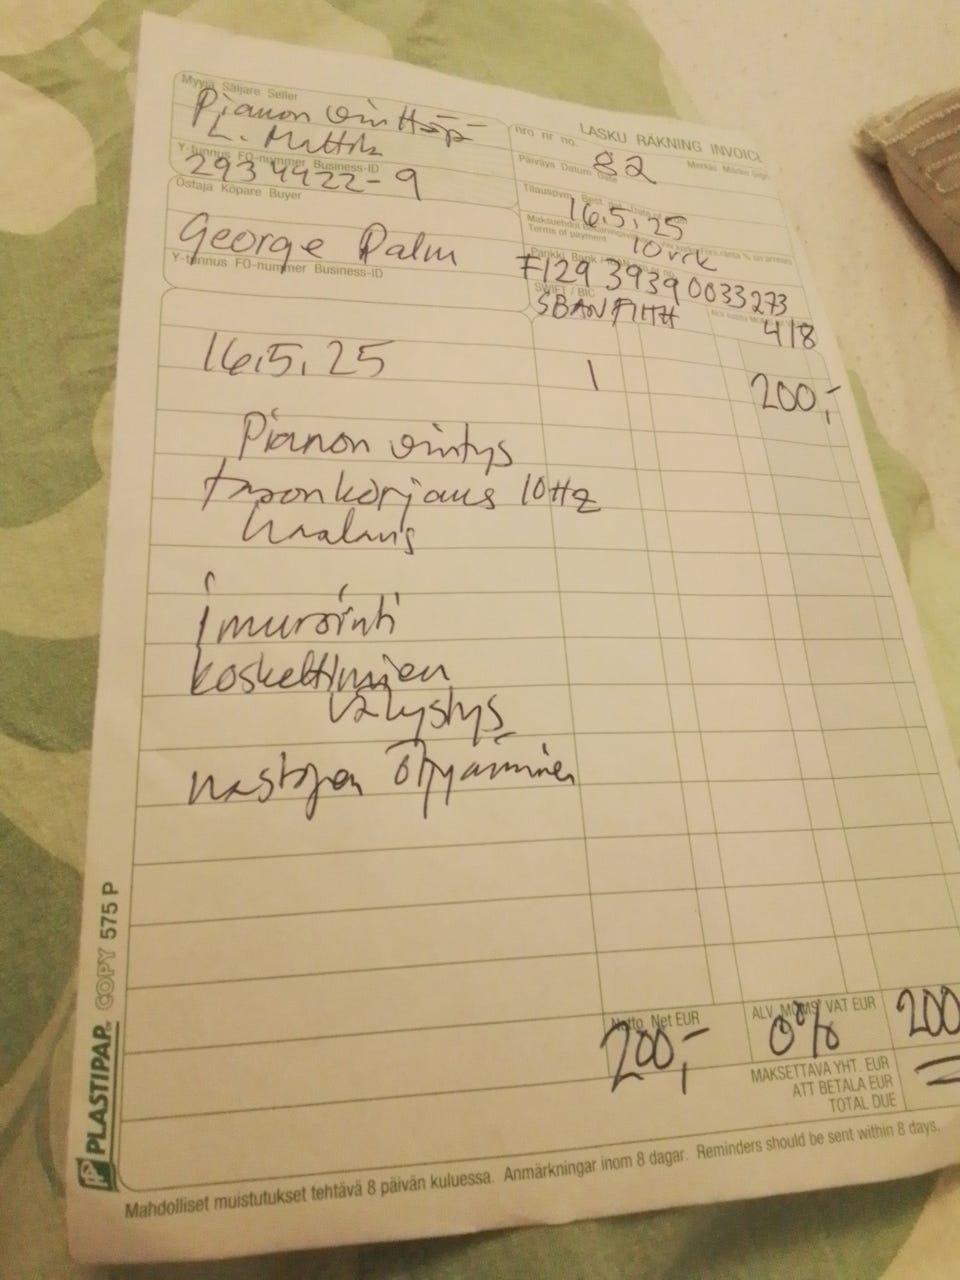 LASKU RÄKNING INVOICE
Myyjä Säljare Seller
L. Mattila
Y-tunnus FO-nummer Business-ID
2934422-9
nro nr no.
82
Päiväys Datum Date
16.5.25
Maksuehdot
Terms of payment
10vrk
Ostaja Köpare Buyer
George Palm
Y-tunnus FO-nummer Business-ID
Pankki Bank
FI29 3939 0033273
SWIFT / BIC
SBANFIHH
418
16.5.25 1 200,-
Pianon viritys
tasonkorjaus 10Hz
imurointi
koskettimien
välystys
nastojen öljyäminen
Netto Net EUR
200,-
ALV MOMS VAT EUR
0%
200
MAKSETTAVA YHT. EUR
ATT BETALA EUR
TOTAL DUE
Mahdolliset muistutukset tehtävä 8 päivän kuluessa. Anmärkningar inom 8 dagar. Reminders should be sent within 8 days.
PLASTIPAP COPY 575 P